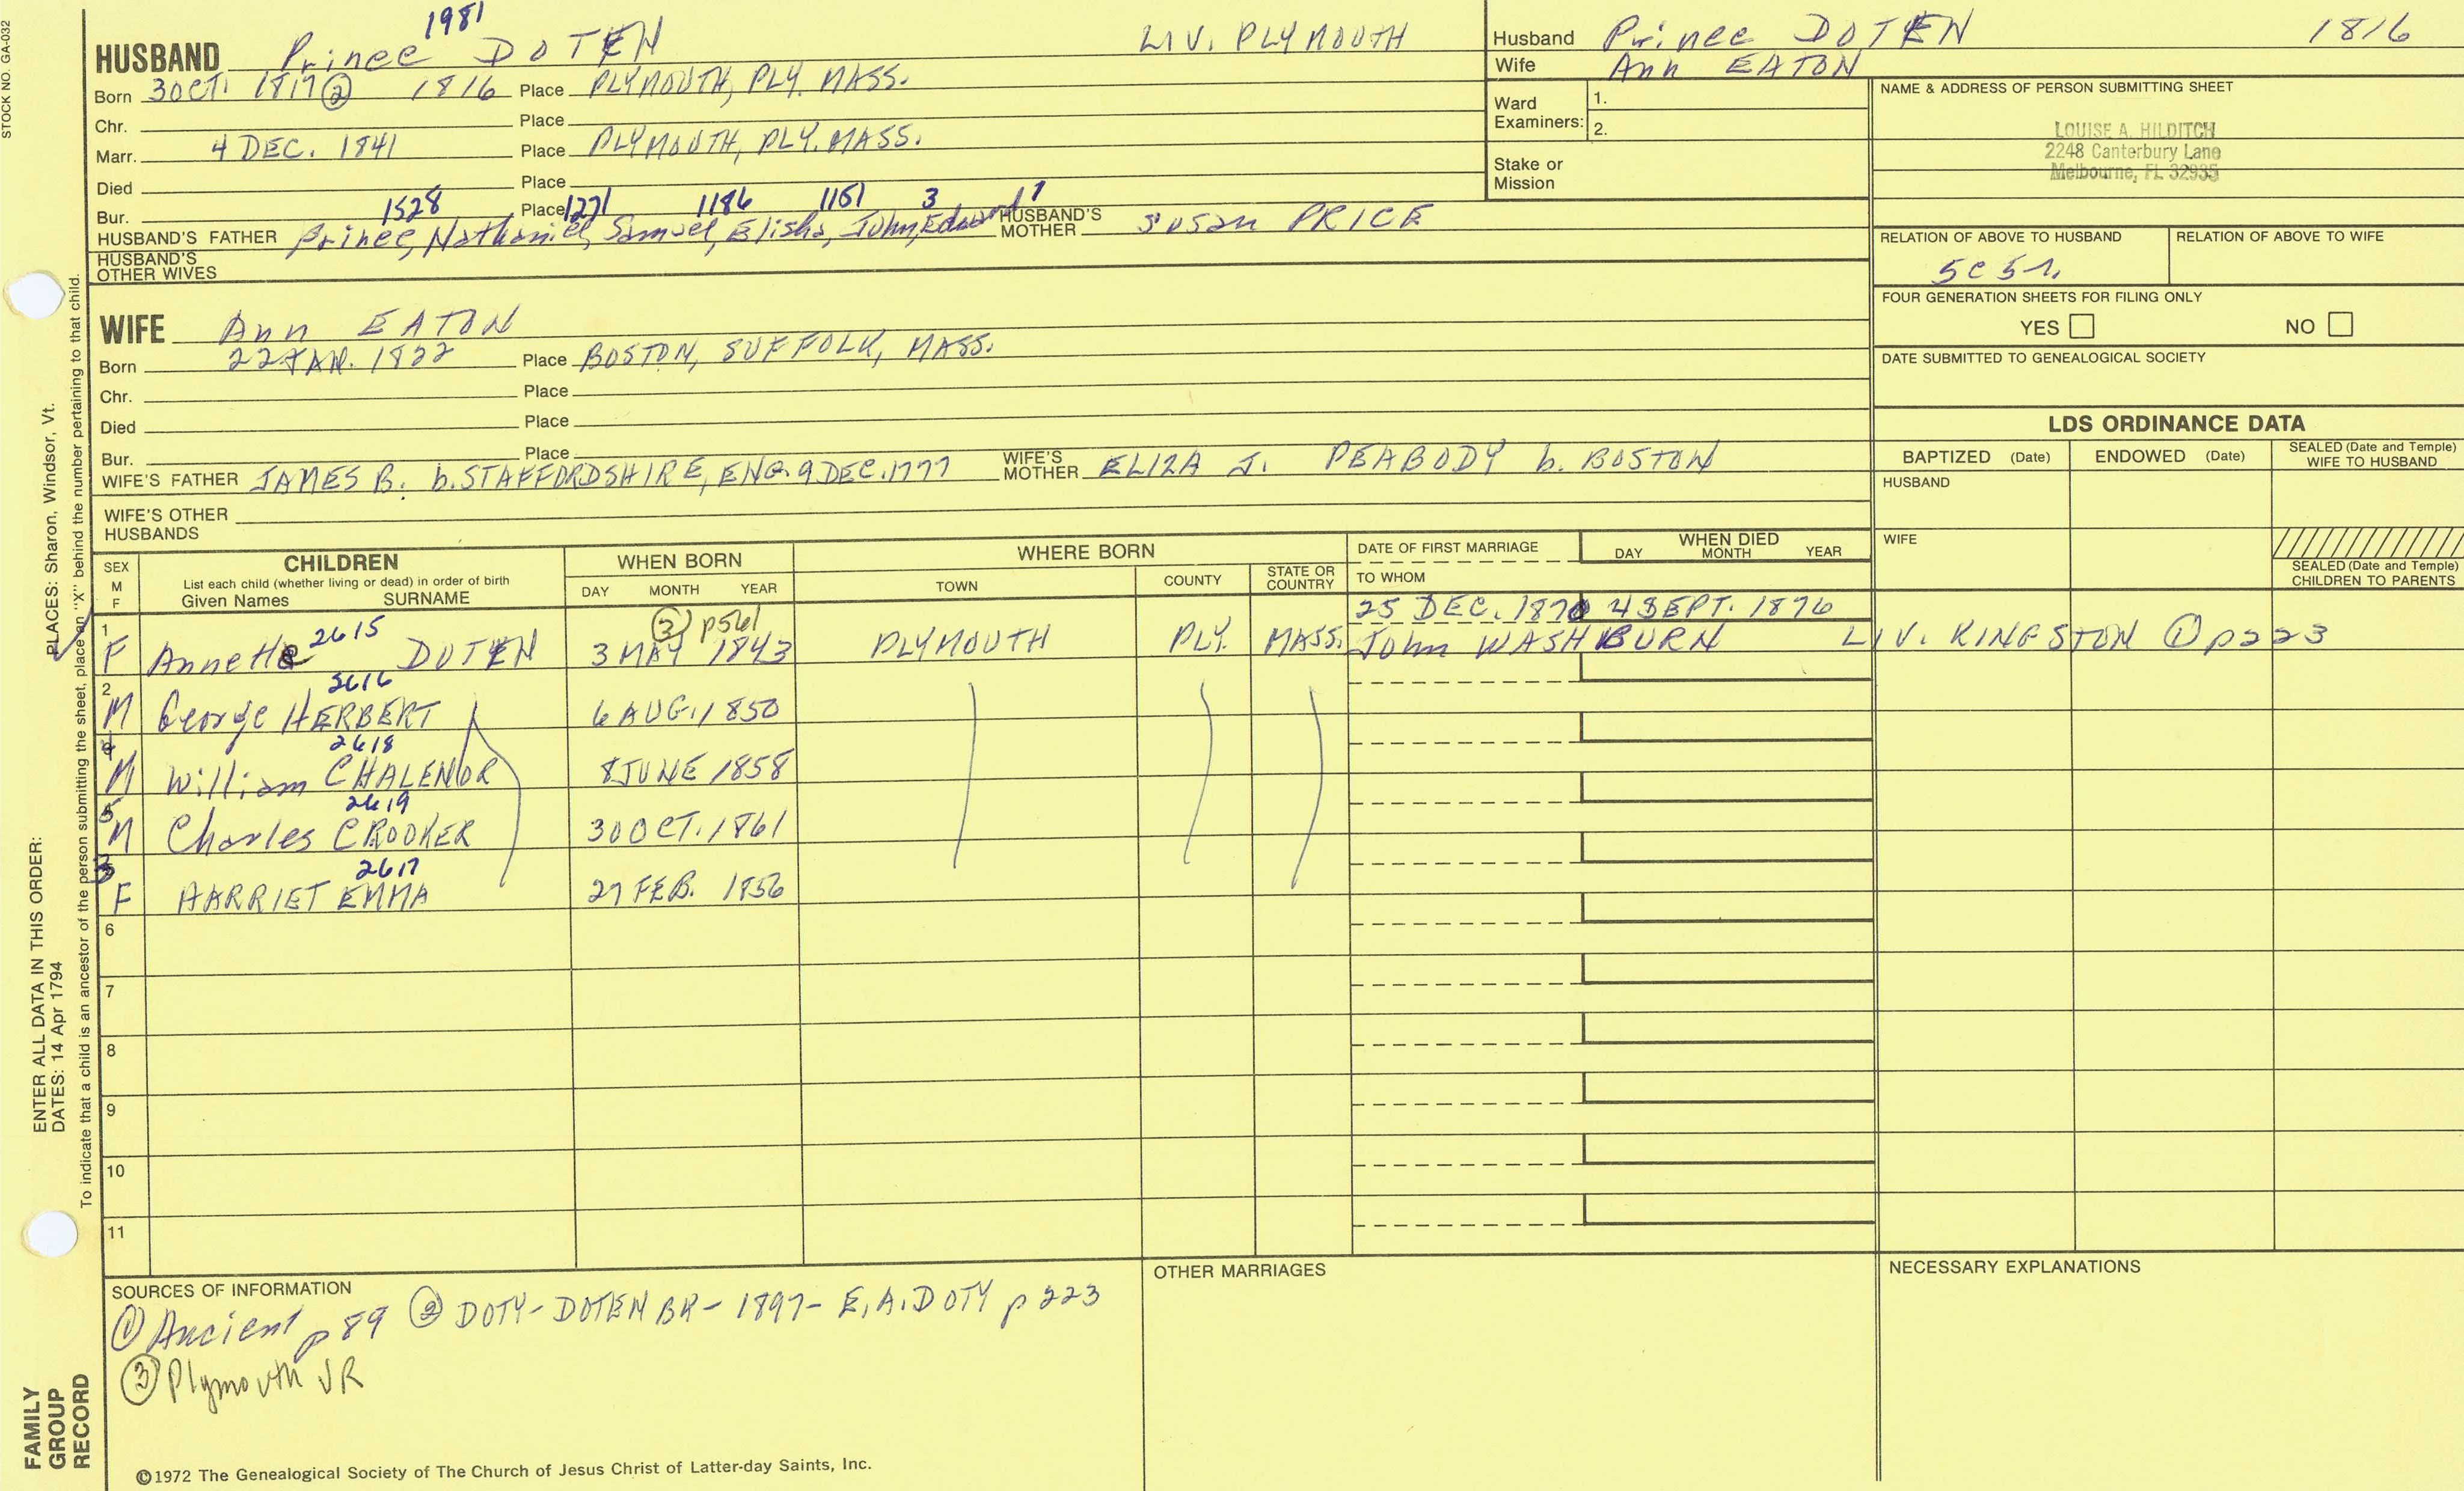 STOCK NO. GA-032
1981
HUSBAND Prince DOTEN LIV. PLYMOUTH
Born 30CT. 1817② 1816 Place PLYMOUTH, PLY. MASS.
Chr. Place
Marr. 4 DEC. 1841 Place PLYMOUTH, PLY. MASS.
Died Place
Bur. Place
1528 1271 1186 1151 3 1
HUSBAND'S FATHER Prince, Nathaniel, Samuel, Elisha, John, Edward HUSBAND'S MOTHER Susan PRICE
HUSBAND'S OTHER WIVES
Husband Prince DOTEN 1816
Wife Ann EATON
Ward Examiners: 1.
2.
Stake or Mission
NAME & ADDRESS OF PERSON SUBMITTING SHEET
LOUISE A. HILDITCH
2248 Canterbury Lane
Melbourne, FL 32935
RELATION OF ABOVE TO HUSBAND RELATION OF ABOVE TO WIFE
5c5r.
FOUR GENERATION SHEETS FOR FILING ONLY
YES NO
DATE SUBMITTED TO GENEALOGICAL SOCIETY
WIFE Ann EATON
Born 22 JAN. 1822 Place BOSTON, SUFFOLK, MASS.
Chr. Place
Died Place
Bur. Place
WIFE'S FATHER JAMES B. b. STAFFORDSHIRE, ENG. 9 DEC. 1777 WIFE'S MOTHER ELIZA J. PEABODY b. BOSTON
WIFE'S OTHER HUSBANDS
LDS ORDINANCE DATA
BAPTIZED (Date) ENDOWED (Date) SEALED (Date and Temple) WIFE TO HUSBAND
HUSBAND
WIFE
SEALED (Date and Temple) CHILDREN TO PARENTS
SEX M F
CHILDREN
List each child (whether living or dead) in order of birth
Given Names SURNAME
WHEN BORN
DAY MONTH YEAR
WHERE BORN
TOWN COUNTY STATE OR COUNTRY
DATE OF FIRST MARRIAGE
TO WHOM
WHEN DIED
DAY MONTH YEAR
③ p561 25 DEC. 1870 4 SEPT. 1876
1 F Annette 2615 DOTEN 3 MAY 1843 PLYMOUTH PLY. MASS. John WASHBURN LIV. KINGSTON ① p223
2 M George HERBERT 2616 6 AUG. 1850
4 M William CHALENOR 2618 8 JUNE 1858
5 M Charles CROOKER 2619 30 OCT. 1861
3 F HARRIET EMMA 2617 27 FEB. 1856
6
7
8
9
10
11
SOURCES OF INFORMATION
① Ancient p 89 ② DOTY-DOTEN BK - 1897 - E.A. DOTY p 223
③ Plymouth VR
OTHER MARRIAGES
NECESSARY EXPLANATIONS
©1972 The Genealogical Society of The Church of Jesus Christ of Latter-day Saints, Inc.
ENTER ALL DATA IN THIS ORDER:
DATES: 14 Apr 1794
PLACES: Sharon, Windsor, Vt.
To indicate that a child is an ancestor of the person submitting the sheet, place an "X" behind the number pertaining to that child.
FAMILY
GROUP
RECORD